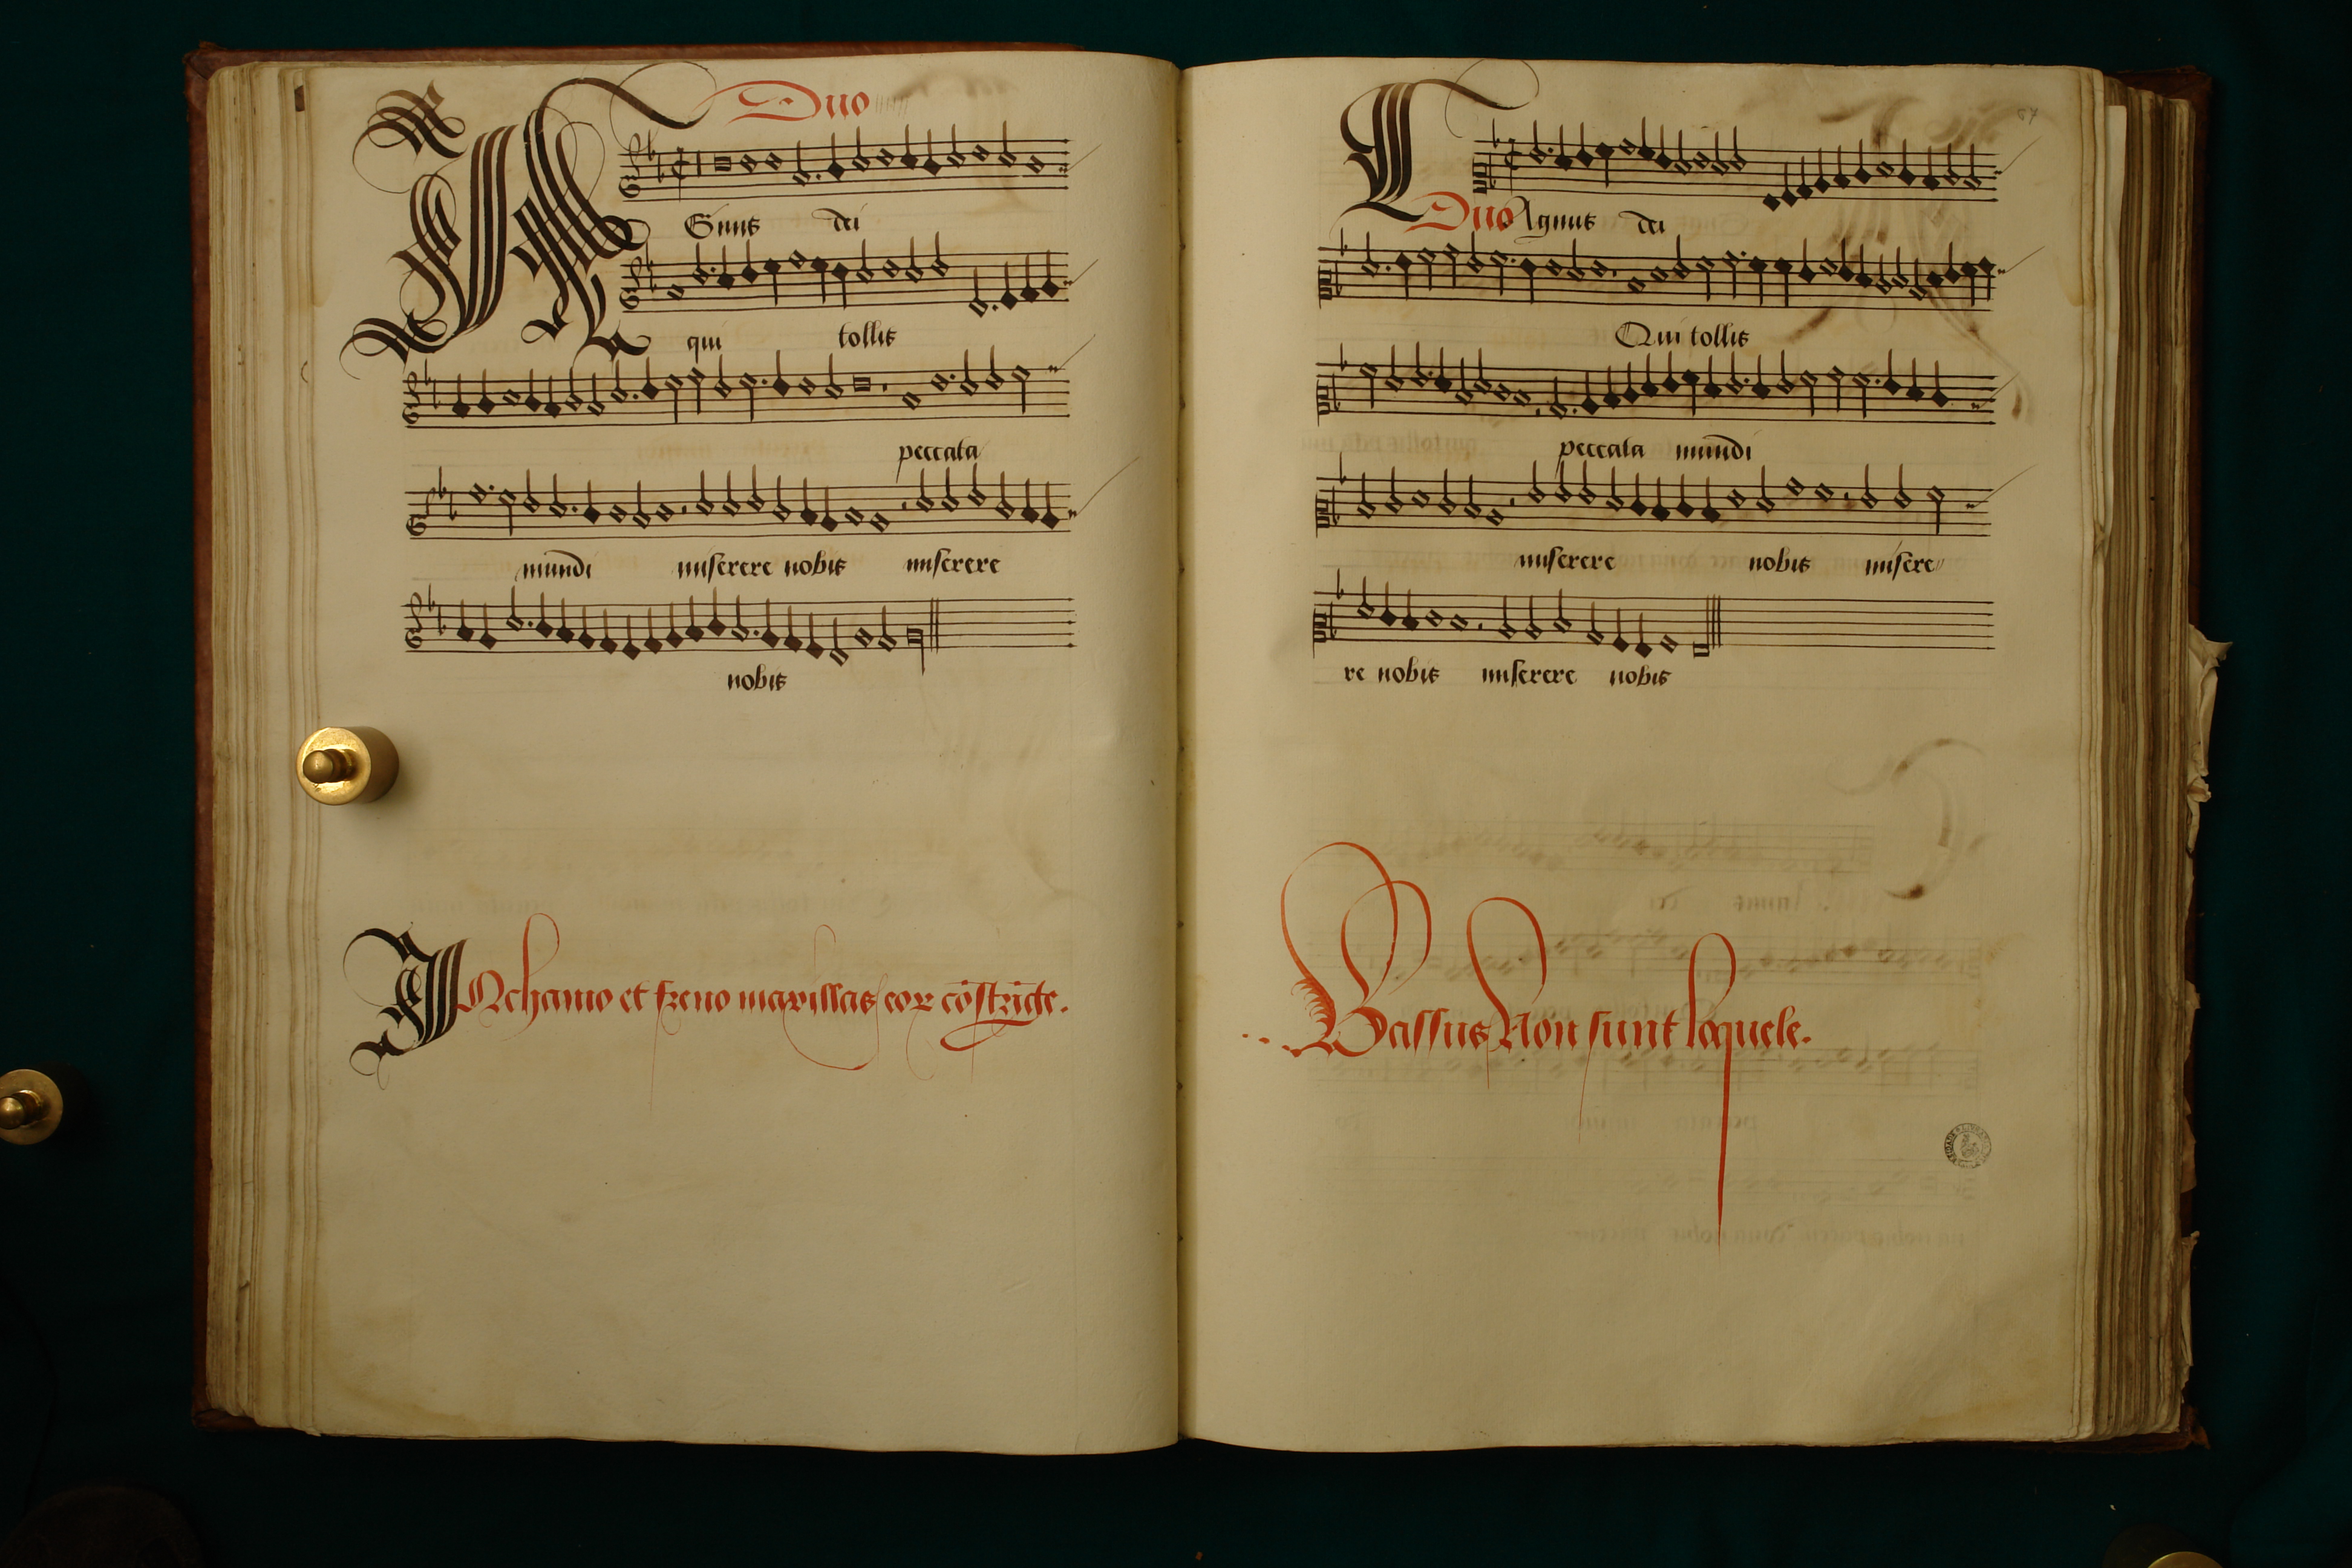 Duo
AGnus dei
qui tollis
peccata
mundi miserere nobis miserere
nobis
IN chamo et freno maxillas eor cōstrīge.
Duo Agnus dei
Qui tollis
peccata mundi
miserere nobis misere
re nobis miserere nobis
Bassus Non sunt loquele.